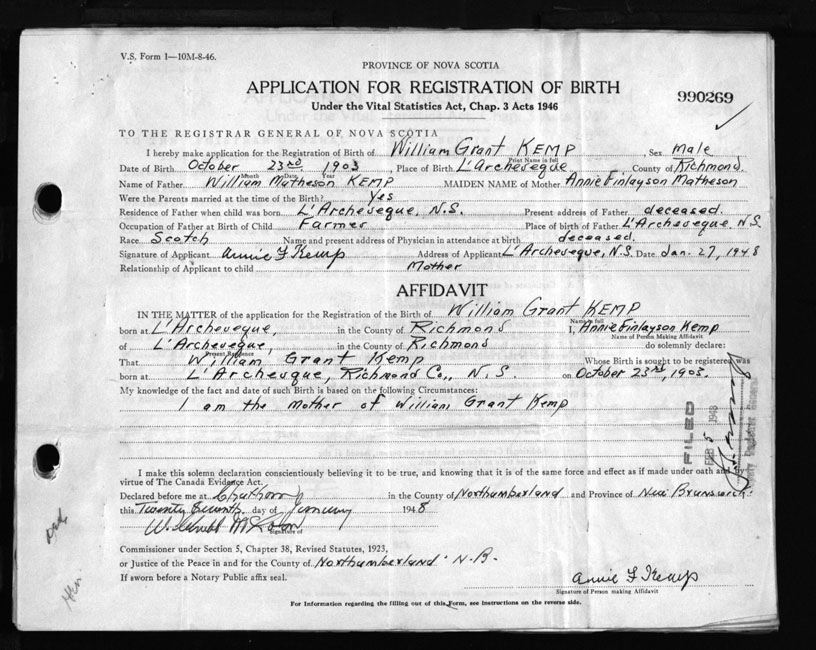 V.S. Form 1—10M-8-46.
PROVINCE OF NOVA SCOTIA
APPLICATION FOR REGISTRATION OF BIRTH
990269
Under the Vital Statistics Act, Chap. 3 Acts 1946
TO THE REGISTRAR GENERAL OF NOVA SCOTIA
I hereby make application for the Registration of Birth of William Grant KEMP, Sex Male
Print Name in full
Date of Birth October 23rd 1903, Place of Birth L'Archeveque County of Richmond.
Month Date Year
Name of Father William Matheson KEMP MAIDEN NAME of Mother Annie Finlayson Matheson
Were the Parents married at the time of the Birth? Yes
Residence of Father when child was born L'Archeveque, N.S. Present address of Father deceased.
Occupation of Father at Birth of Child Farmer Place of birth of Father L'Archeveque N.S.
Race Scotch Name and present address of Physician in attendance at birth deceased.
Signature of Applicant Annie F Kemp Address of Applicant L'Archeveque, N.S. Date Jan. 27, 1948
Relationship of Applicant to child Mother
AFFIDAVIT
IN THE MATTER of the application for the Registration of the Birth of William Grant KEMP
Name in full
born at L'Archeveque, in the County of Richmond I, Annie Finlayson Kemp
Name of Person Making Affidavit
of L'Archeveque, in the County of Richmond do solemnly declare:
Present Residence
That William Grant Kemp Whose Birth is sought to be registered was
born at L'Archevque, Richmond Co., N.S. on October 23rd, 1903.
My knowledge of the fact and date of such Birth is based on the following Circumstances:
I am the Mother of William Grant Kemp
FILED
FEB 5 1948
I make this solemn declaration conscientiously believing it to be true, and knowing that it is of the same force and effect as if made under oath and by
virtue of The Canada Evidence Act.
Declared before me at Chatham in the County of Northumberland and Province of New Brunswick.
this Twenty Seventh day of January 1948
Signature of
Commissioner under Section 5, Chapter 38, Revised Statutes, 1923,
or Justice of the Peace in and for the County of Northumberland N.B.
If sworn before a Notary Public affix seal.
Annie F Kemp
Signature of Person making Affidavit
For Information regarding the filling out of this Form, see Instructions on the reverse side.